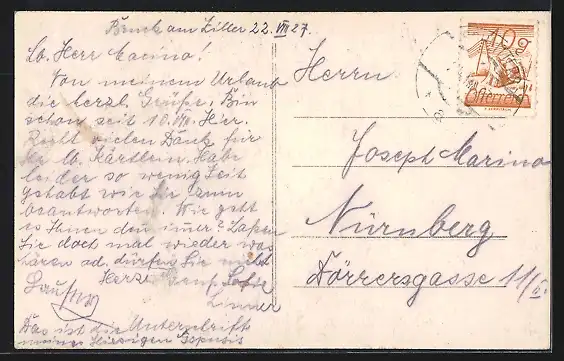 Bruck am Ziller 22. VIII 27.
Lb. Herr Marino!
Von meinem Urlaub
die herzl. Grüße. Bin
schon seit 10. VIII. Hier.
Recht vielen Dank für
Ihr lb. Kärtlein. Habe
leider so wenig Zeit
gehabt wie Sie zum
beantworten. Wie geht
es Ihnen den imer? Laßen
Sie doch mal wieder was
hören od. dürfen Sie nicht
Herzl. Gruß. Sofie
Linner
Das ist die Unterschrift
meines hiesigen Gspusis
Herrn
Joseph Marino
Nürnberg
Dörrersgasse 11/I.
10g
Österreich